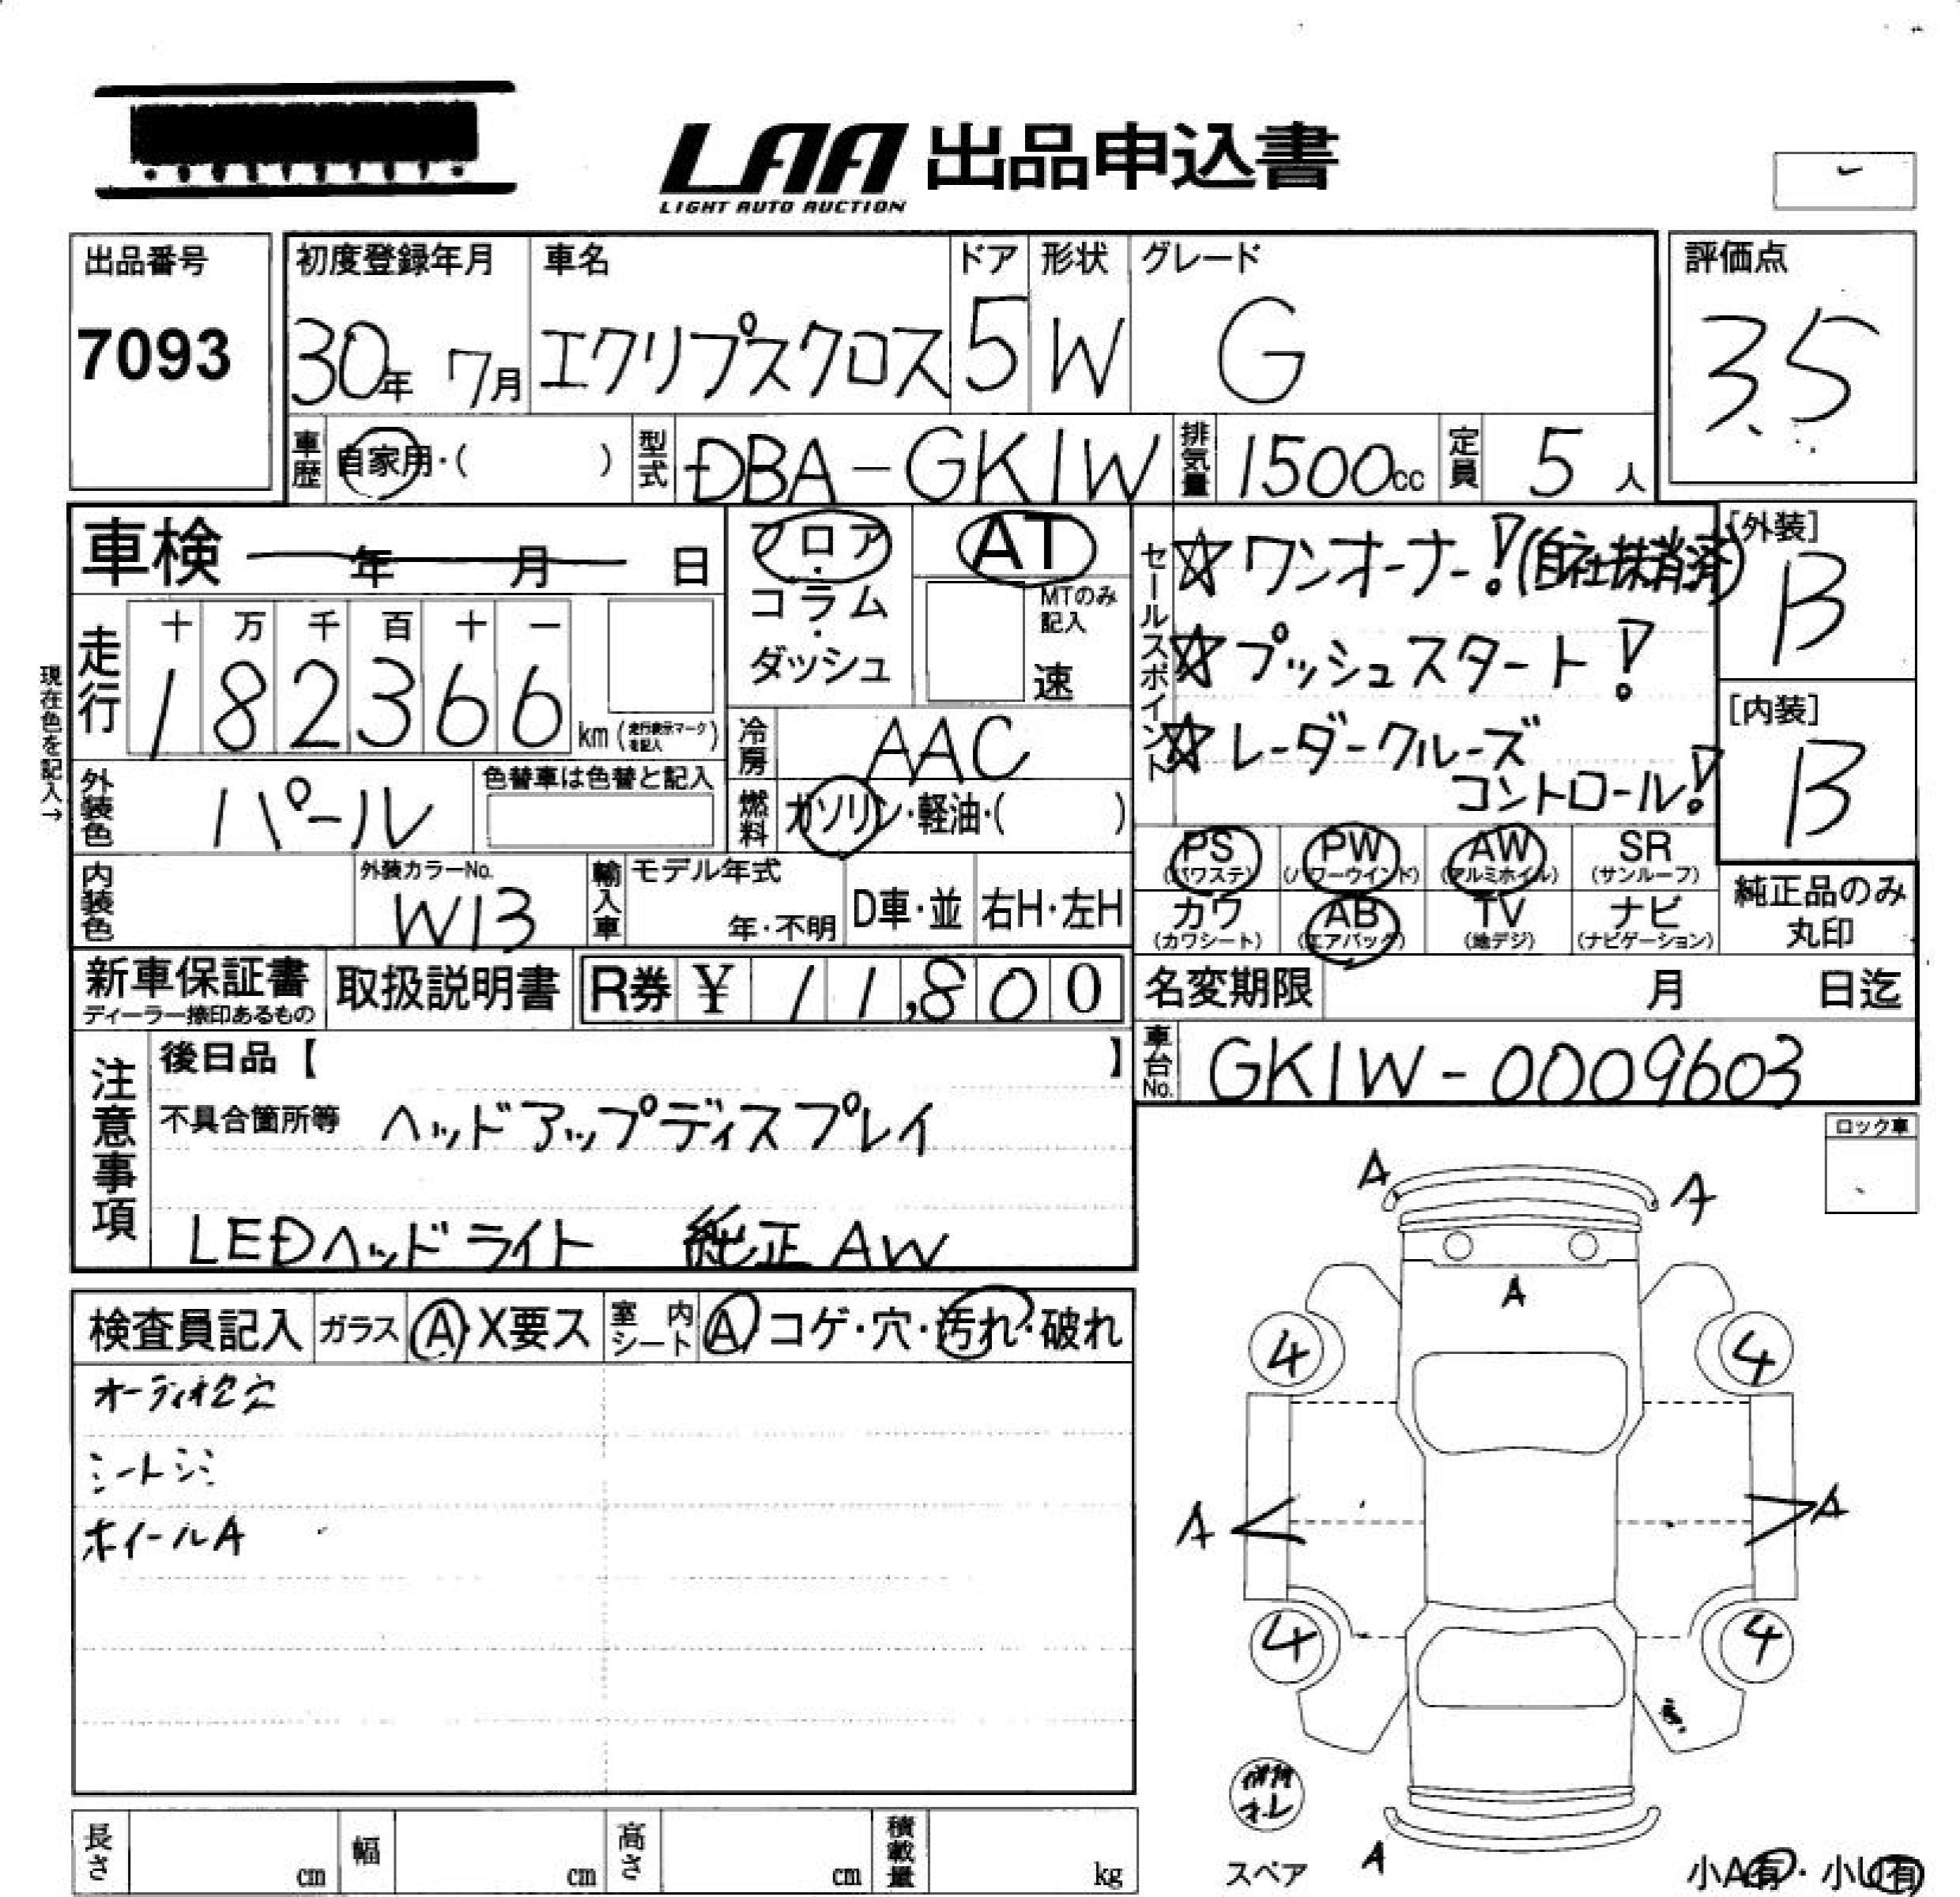 LAA 出品申込書
LIGHT AUTO AUCTION
出品番号
7093
初度登録年月
30年 7月
車名
エクリプスクロス
ドア
5
形状
W
グレード
G
評価点
3.5
車歴 自家用・( )
型式 DBA-GK1W
排気量 1500cc
定員 5人
車検 年 月 日
フロア・コラム・ダッシュ
AT
MTのみ記入
速
セールスポイント
☆ワンオーナー!(自社抹消済)
☆プッシュスタート!
☆レーダークルーズ
コントロール!
[外装]
B
[内装]
B
現在色を記入→
走行
十 万 千 百 十 一
182366 km (走行表示マークを記入)
冷房 AAC
燃料 ガソリン・軽油・( )
外装色 パール
色替車は色替と記入
内装色
外装カラーNo.
W13
輸入車
モデル年式
年・不明
D車・並
右H・左H
PS (パワステ)
PW (パワーウインド)
AW (アルミホイル)
SR (サンルーフ)
カワ (カワシート)
AB (エアバック)
TV (地デジ)
ナビ (ナビゲーション)
純正品のみ
丸印
新車保証書
ディーラー捺印あるもの
取扱説明書
R券 ¥ 11,800
名変期限 月 日迄
車台No. GK1W-0009603
注意事項
後日品【 】
不具合箇所等 ヘッドアップディスプレイ
LEDヘッドライト 純正AW
ロック車
検査員記入
ガラス A・X要ス
室内シート A コゲ・穴・汚れ・破れ
シートシミ
ホイールA
A
A
A
4
4
A
A
4
4
A
スペア
小A有・小U有
長さ cm
幅 cm
高さ cm
積載量 kg